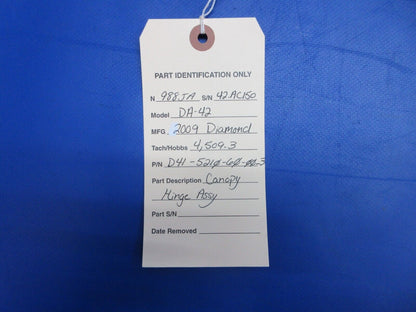 PART IDENTIFICATION ONLY
N 988JA S/N 42.AC150
Model DA-42
MFG 2009 Diamond
Tach/Hobbs 4,509.3
P/N D41-5210-60-00-3
Part Description Canopy
Hinge Assy
Part S/N
Date Removed